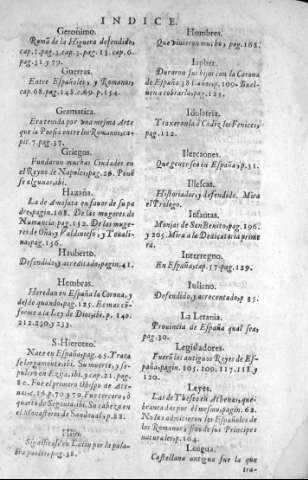 INDICE.
Geronimo.
Romã de la Higuera defendido,
cap.1.pag.3.cap.3.pag.13.cap.6.
pag.31.y 79.
Guerras.
Entre Españoles, y Romanos,
cap.68.pag.148.c.69.p.154.
Gramatica.
Era tenida por una mesma Arte
que la Poesia entre los Romanos,ca-
pit.7.pag.37.
Griegus.
Fundaron muchas Ciudades en
el Reyno de Napoles,pag.26. Ponẽ
se algunas ibi.
Hazaña.
La de Amajata en favor de su pa
dre,pagin.108. De las mugeres de
Numancia pag.152. De las muge-
res de
pag.156.
Hauberto.
Defendido,y acreditado,pagin.41.
Hembras.
Heredan en España la Corona, y
desde quando,pag.125. Es mas cõ-
forme a la Ley de Dios,ibi.p. 140.
212.230.y 233.
S.Hieroteo.
Nace en España,pag.65.Trata
se largamente,ibi. Su muerte,y se-
pulcro en Ezija,ibi,y cap.21.pag.
80. Fue el primero Obispo de Ate-
nas,c.16.p.70.y 79. Fue tercero,o
quarto de Segovia,ibi. Su cabeça en
el Monasterio de Sandoval,p.88.
Significase en Latin por la pala-
bra pag.28.
Hombres.
Que vivieron mucho, pag.168.
Iaphet.
Duraron sus hijos con la Corona
de España 381.años,p.109. Buel-
uen a cobrarla,pag.125.
Idolatria.
Traxeronla à Cadiz los Fenices,
pag.122.
Ilercaones.
Que gente sea en España,p.31.
Illescas.
Historiador,y defendido. Mira
el Prologo.
Infantas.
Monjas de San Benito,pag.196.
y 265. Mira a la Dedicatoria prime
ra.
Interregno.
En España,cap.57.pag.129.
Iuliano.
Defendido,y acrecentado,p. 45.
La Letania.
Provincia de España qual sea,
pag.30.
Legisladores.
Fuerõ los antiguos Reyes de Es-
paña,pagin. 105. 109. 117.118.y
120.
Leyes.
Las de Theseo en Athenas,que-
brantadas por el mesmo,pagin.62.
No las admitieron los Españoles de
los Romanos, sino de sus Principes
naturales,p.164.
Lengua.
Castellana antigua fue la que
tra-